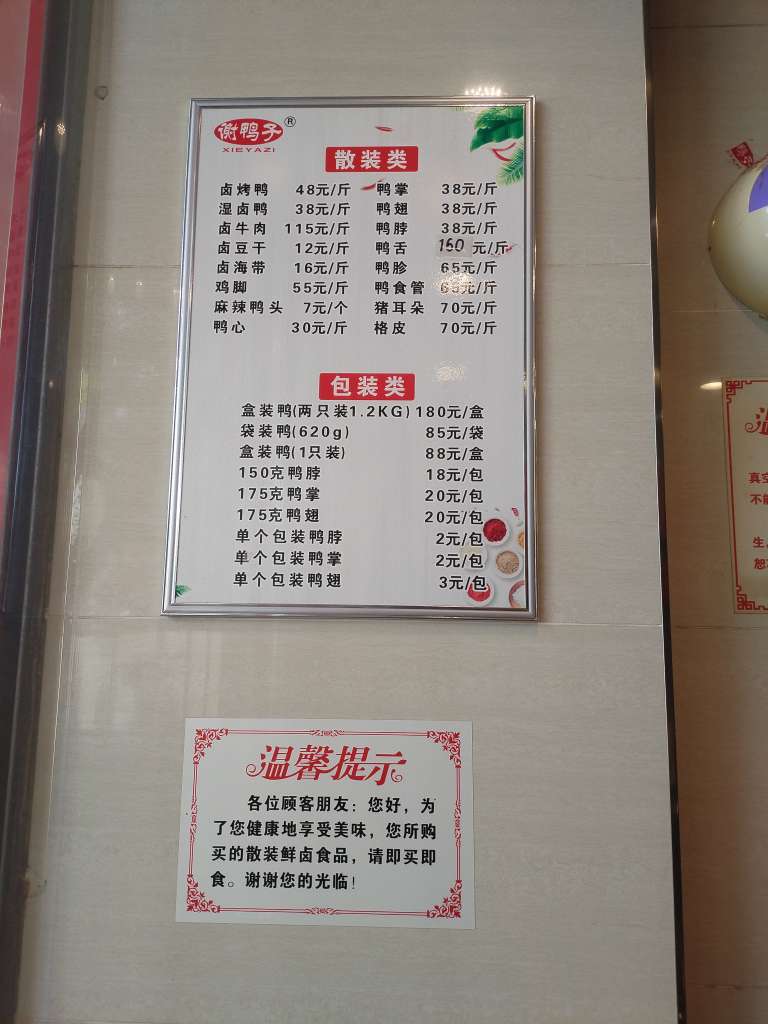 谢鸭子®
XIEYAZI
散装类
卤烤鸭 48元/斤 鸭掌 38元/斤
湿卤鸭 38元/斤 鸭翅 38元/斤
卤牛肉 115元/斤 鸭脖 38元/斤
卤豆干 12元/斤 鸭舌 160元/斤
卤海带 16元/斤 鸭胗 65元/斤
鸡脚 55元/斤 鸭食管 65元/斤
麻辣鸭头 7元/个 猪耳朵 70元/斤
鸭心 30元/斤 格皮 70元/斤
包装类
盒装鸭(两只装1.2KG) 180元/盒
袋装鸭(620g) 85元/袋
盒装鸭(1只装) 88元/盒
150克鸭脖 18元/包
175克鸭掌 20元/包
175克鸭翅 20元/包
单个包装鸭脖 2元/包
单个包装鸭掌 2元/包
单个包装鸭翅 3元/包
温馨提示
各位顾客朋友：您好，为
了您健康地享受美味，您所购
买的散装鲜卤食品，请即买即
食。谢谢您的光临！
真空
不能
生